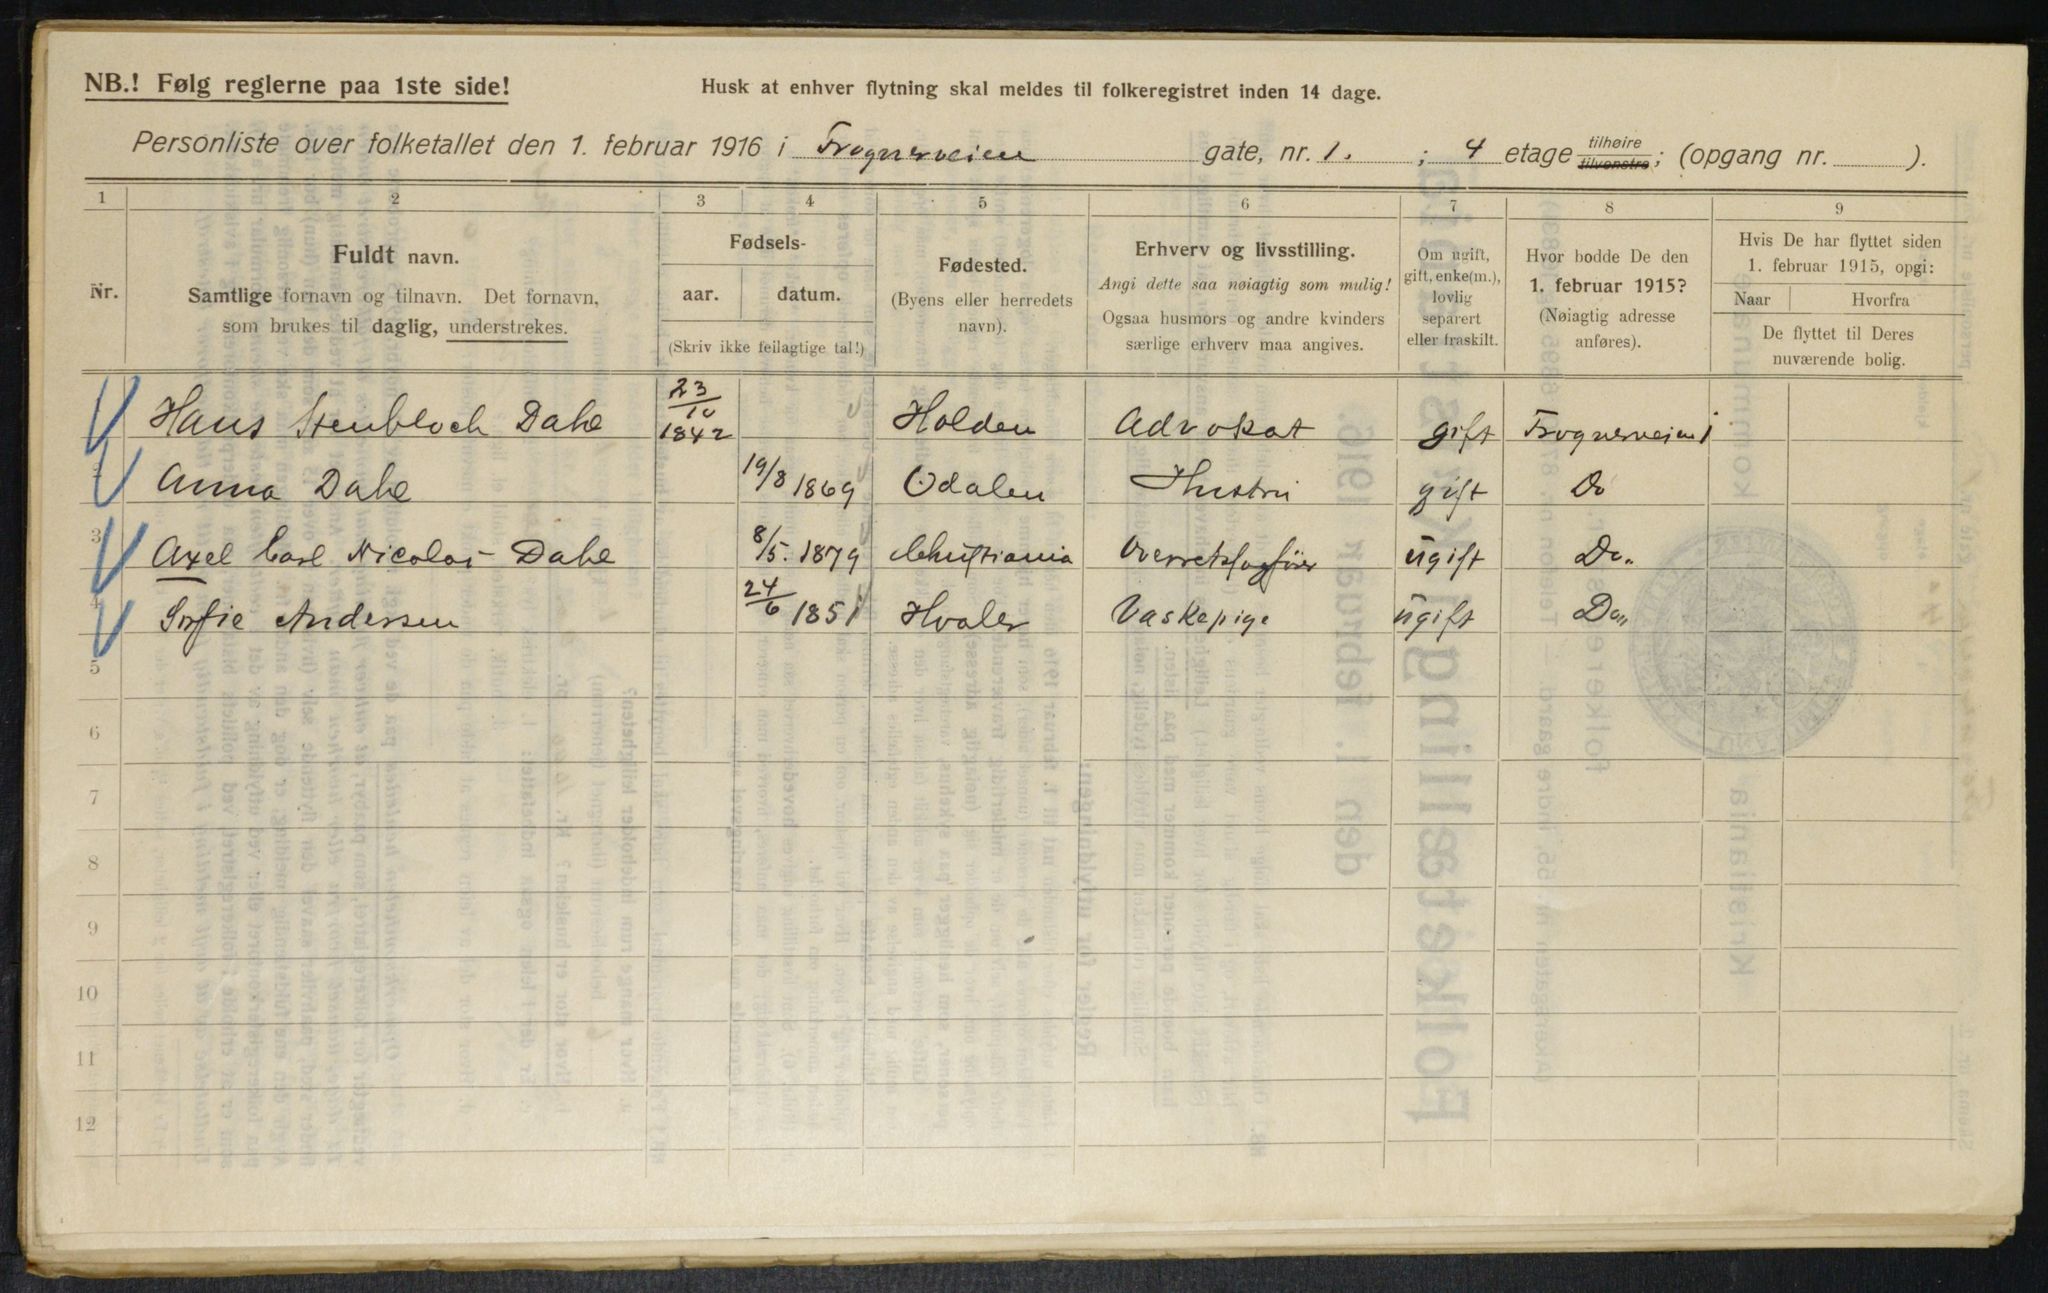 NB.! Følg reglerne paa 1ste side!
Husk at enhver flytning skal meldes til folkeregistret inden 14 dage.
Personliste over folketallet den 1. februar 1916 i Frognerveien gate, nr. 1. ; 4 etage tilhøire tilvenstre; (opgang nr. ).
1 2 3 4 5 6 7 8 9
Nr.
Fuldt navn.
Samtlige fornavn og tilnavn. Det fornavn,
som brukes til daglig, understrekes.
Fødsels-
aar. datum.
(Skriv ikke feilagtige tal!)
Fødested.
(Byens eller herredets
navn).
Erhverv og livsstilling.
Angi dette saa nøiagtig som mulig!
Ogsaa husmors og andre kvinders
særlige erhverv maa angives.
Om ugift,
gift, enke(m.),
lovlig
separert
eller fraskilt.
Hvor bodde De den
1. februar 1915?
(Nøiagtig adresse
anføres).
Hvis De har flyttet siden
1. februar 1915, opgi:
Naar Hvorfra
De flyttet til Deres
nuværende bolig.
Hans Stenbloch Dahl 23/10 1842 Holden Advokat gift Frognerveien 1
Anna Dahl 19/8 1869 Odalen Hustru gift Do
3 Axel Carl Nicolai Dahl 8/5. 1879 Christiania Overretssagfører ugift Do„
4 Sofie Andersen 24/6 1851 Hvaler Vaskepige ugift Do„
5
6
7
8
9
10
11
12